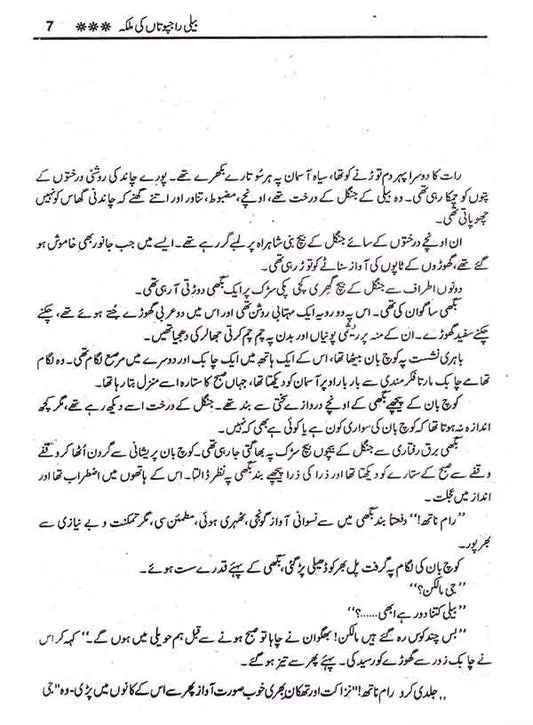 بیلی راجپوتاں کی ملکہ ❋❋❋ 7
رات کا دوسرا پہر دم توڑنے کو تھا، سیاہ آسمان پہ ہر سُو تارے بکھرے تھے۔ پورے چاند کی روشنی درختوں کے
پتوں کو چمکا رہی تھی۔ وہ بیلی کے جنگل کے درخت تھے، اونچے، مضبوط، تناور اور اتنے گھنے کہ چاندنی گھاس کو نہیں
چھو پاتی تھی۔
ان اونچے درختوں کے سائے جنگل کے بیچ بنی شاہراہ پر لمبے گر رہے تھے۔ ایسے میں جب جانور بھی خاموش ہو
گئے تھے، گھوڑوں کے ٹاپوں کی آواز سناٹے کو توڑ رہی تھی۔
دونوں اطراف سے جنگل کے بیچ گھری کچی پکی سڑک پر ایک بگھی دوڑتی آ رہی تھی۔
بگھی ساگوان کی تھی۔ اس پہ دو رویہ ایک مہتابی روشن تھی اور اس میں دو عربی گھوڑے جُتے ہوئے تھے، چکنے
چکنے سفید گھوڑے۔ ان کے منہ پر ریشمی پونیاں اور بدن پہ چم چم کرتی جھالر کی دھجیاں تھیں۔
باہری نشست پہ کوچ بان بیٹھا تھا، اس کے ایک ہاتھ میں ایک چابک اور دوسرے میں مرصع لگام تھی۔ وہ لگام
تھامے چابک مارتا فکرمندی سے بار بار اوپر آسمان کو دیکھتا تھا، جہاں صبح کا ستارہ اسے منزل بتا رہا تھا۔
کوچ بان کے پیچھے بگھی کے اونچے دروازے سختی سے بند تھے۔ جنگل کے درخت اسے دیکھ رہے تھے، مگر کچھ
اندازہ نہ ہوتا تھا کہ کوچ بان کی سواری کون ہے یا کوئی ہے بھی کہ نہیں۔
بگھی برق رفتاری سے جنگل کے بیچوں بیچ سڑک پہ بھاگتی جا رہی تھی۔ کوچ بان پریشانی سے گردن اُٹھا کر وقفے
وقفے سے صبح کے ستارے کو دیکھتا تھا اور ذرا کی ذرا پیچھے بند بگھی پہ نظر ڈالتا۔ اس کے ہاتھوں میں اضطراب تھا اور
انداز میں عجلت۔
’’رام ناتھ!‘‘ دفعتاً بند بگھی میں سے نسوانی آواز گونجی، ٹھہری ہوئی، مطمئن سی، مگر تمکنت و بے نیازی سے
بھرپور۔
کوچ بان کی لگام پہ گرفت پل بھر کو ڈھیلی پڑ گئی، بگھی کے پہئے قدرے سست ہوئے۔
’’جی مالکن؟‘‘
’’بیلی کتنا دور ہے ابھی......؟‘‘
’’بس چند کوس رہ گئے ہیں مالکن! بھگوان نے چاہا تو صبح ہونے سے قبل ہم حویلی میں ہوں گے۔‘‘ کہہ کر اس
نے چابک زور سے گھوڑے کو رسید کی۔ پہئے پھر سے تیز ہو گئے۔
’’جلدی کرو رام ناتھ!‘‘ نزاکت اور تھکان بھری خوب صورت آواز پھر سے اس کے کانوں میں پڑی۔ وہ ’’جی